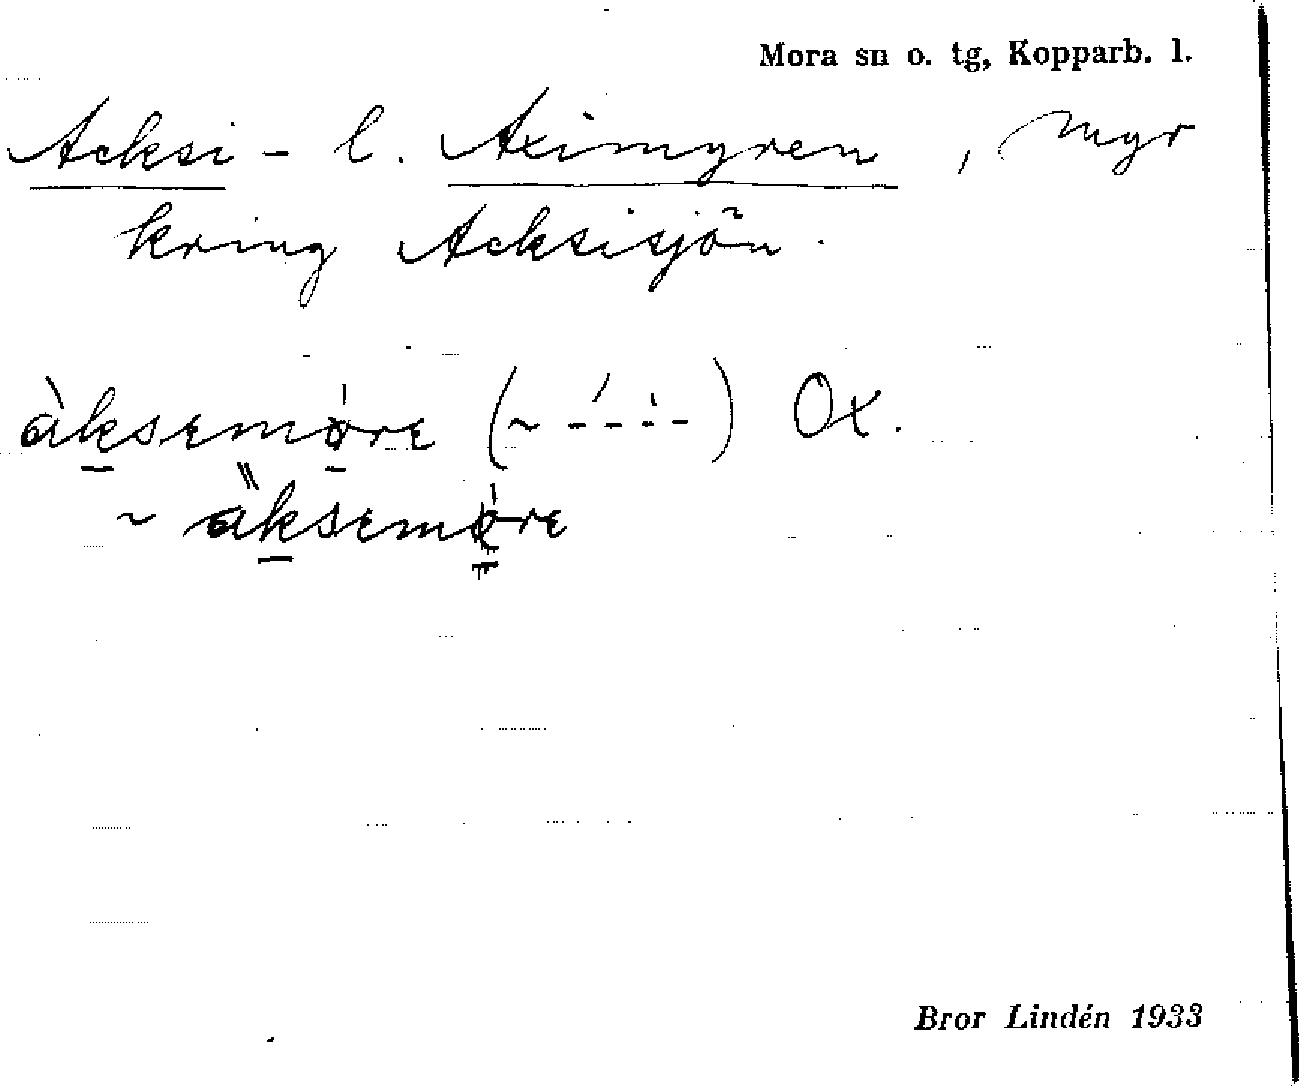 Mora sn o. tg, Kopparb. l.
Acksi- l. Aximyren, myr
kring Acksisjön.
àksemøre (~ - - - -) Ox.
~ àksemøre
Bror Lindén 1933